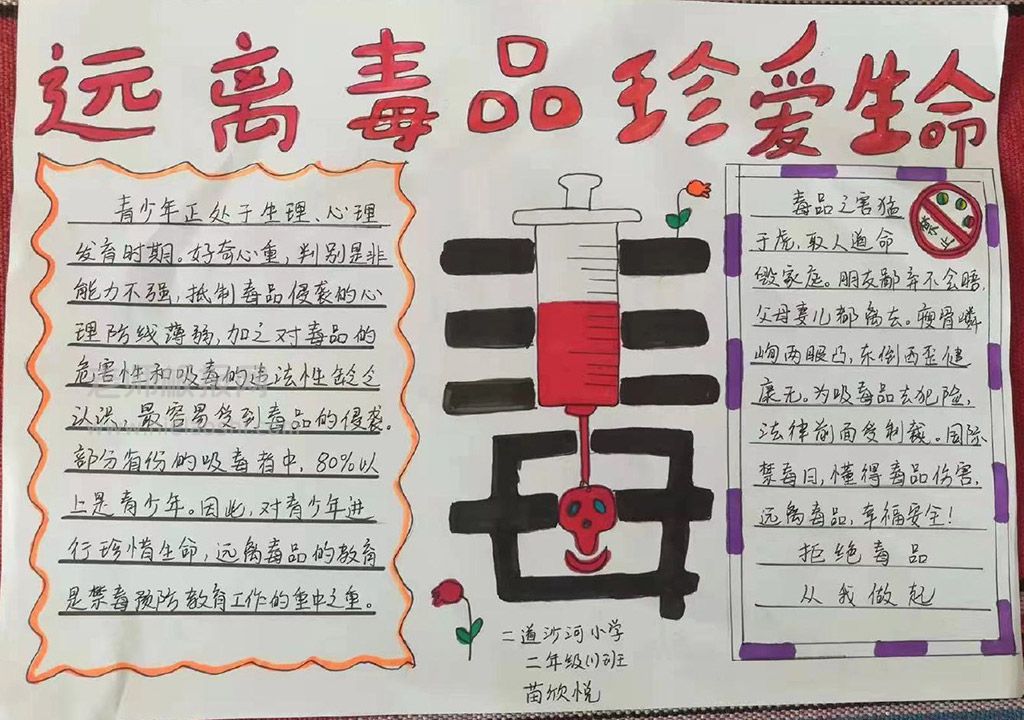 远离毒品珍爱生命
青少年正处于生理、心理
发育时期。好奇心重,判别是非
能力不强,抵制毒品侵袭的心
理防线薄弱,加之对毒品的
危害性和吸毒的违法性缺乏
认识,最容易受到毒品的侵袭。
部分省份的吸毒者中,80%以
上是青少年。因此,对青少年进
行珍惜生命,远离毒品的教育
是禁毒预防教育工作的重中之重。
毒
毒品之害猛
于虎,取人道命
毁家庭。朋友鄙弃不会晤,
父母妻儿都离去。瘦骨嶙
峋两眼凸,东倒西歪健
康无。为吸毒品去犯险,
法律前面受制裁。国际
禁毒日,懂得毒品伤害,
远离毒品,幸福安全!
拒绝毒品
从我做起
二道沙河小学
二年级(1)班
苗欣悦